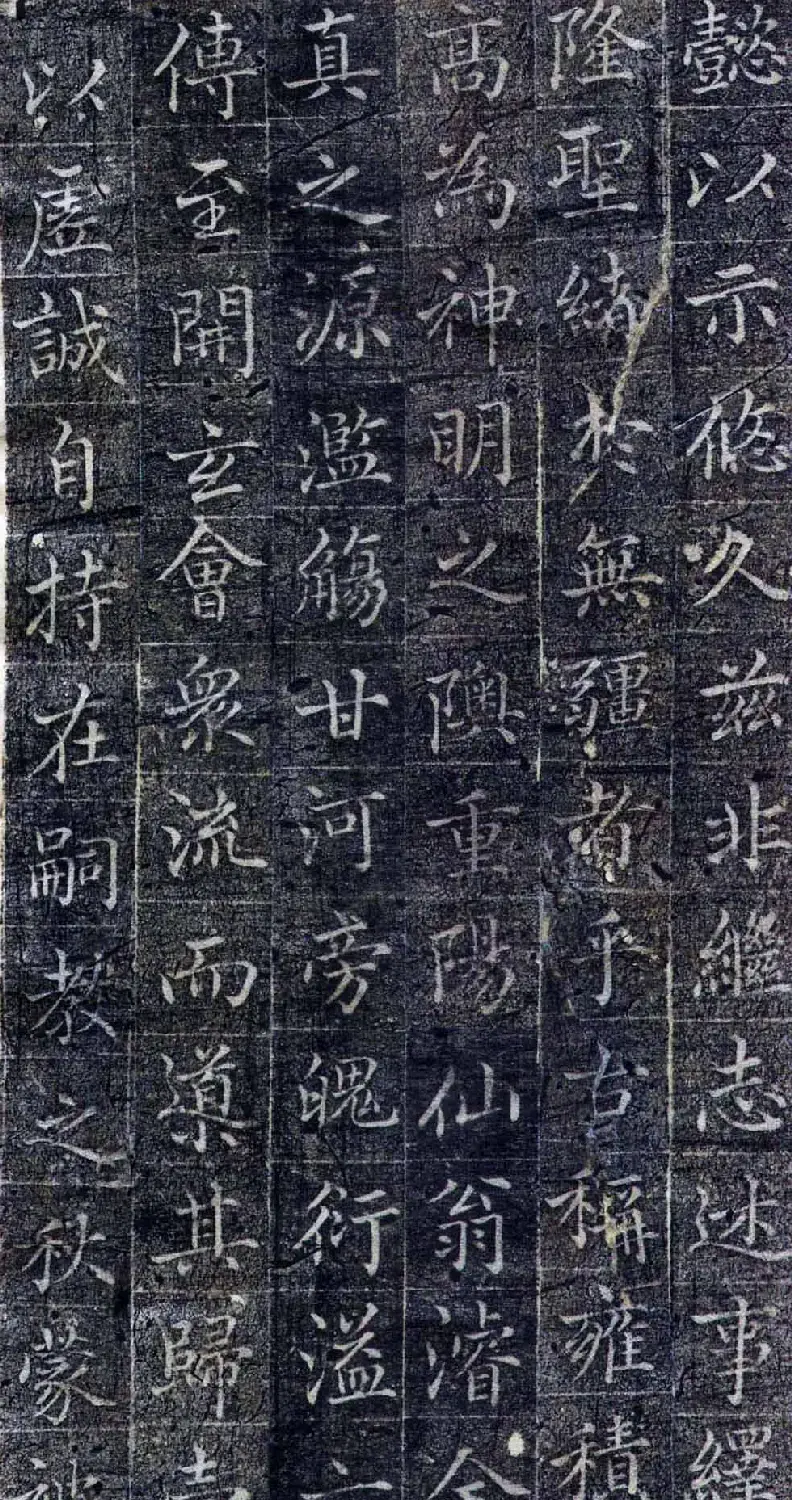 懿以示悠久兹非繼志述事繹
隆聖緒於無疆者乎古稱雍積
髙為神明之隩重陽仙翁濬全
真之源濫觴甘河旁魄衍溢二
傳至開玄會衆流而導其歸
以虛誠自持在嗣教之秋蒙被